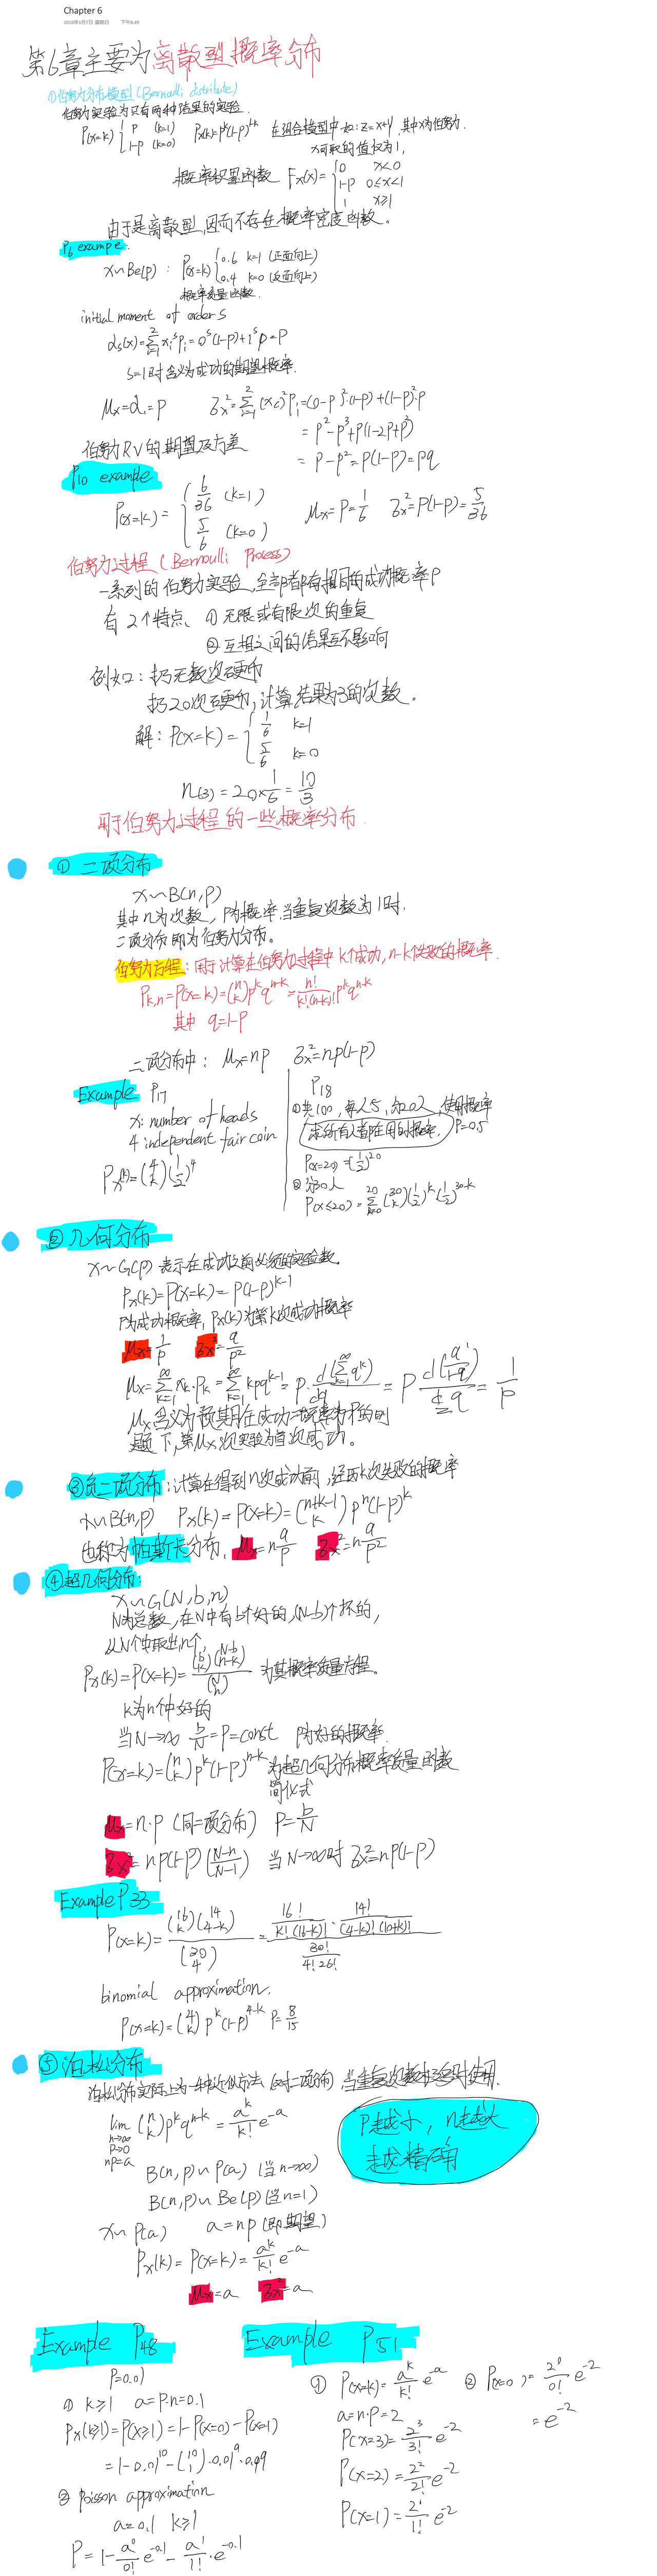 Chapter 6
2018年1月7日 星期日 下午9:49
第6章主要为离散型概率分布
①伯努力分布模型(Bernoulli distribute)
伯努力实验为只有两种结果的实验
P(x=k) { p (k=1)
1-p (k=0)
在混合模型中 如: z=x+y, 其中x为伯努力.
x可取的值仅为1,
函数 Fx(x)= { 0 x<0
1-p 0≤x<1
1 x≥1
由于是离散型,因而不存在概率密度函数。
P6 example.
x~Be(p) : P(x=k) { 0.6 k=1 (正面向上)
0.4 k=0 (反面向上)
概率质量函数.
initial moment of order s
s=1时含义为成功的期望概率.
Mx=α1=p
= p²-p³+p(1-2p+p²)
= p-p²=p(1-p)=pq
伯努力RV的期望及方差
P10 example
Mx=P=1/6 σx²=P(1-P)=5/36
伯努力过程 (Bernoulli Process)
一系列的伯努力实验,全部都有相同的成功概率p
有2个特点、① 无限或有限次的重复
② 互相之间的结果互不影响
例如: 扔无数次硬币
扔20次硬币,计算结果为3的次数。
解: P(x=k)= { 1/6 k=1
5/6 k=0
n(3)=20×1/6=10/3
用于伯努力过程的一些概率分布.
① 二项分布
x~B(n,p)
其中n为次数, P为概率.当重复次数为1时.
二项分布即为伯努力分布。
伯努力方程: 用于计算在伯努力过程中k个成功, n-k个失败的概率.
Pk,n=P(x=k)=(n k)p^k q^n-k=n!/k!(n-k)! p^k q^n-k
其中 q=1-p
二项分布中: Mx=np σx²=np(1-p)
Example P17
x: number of heads
4 independent fair coin
Px(k)=(4 k)(1/2)^4
P18
P=0.5
P(x=20)=(1/2)^20
② 分30人
P(x≤20)=Σ(30 k)(1/2)^k(1/2)^30-k
② 几何分布
x~G(p) 表示在成功之前必须的实验数.
Px(k)=P(x=k)=P(1-p)^k-1
P为成功概率, Px(k)为第k次成功概率
Mx=1/p σx²=q/p²
Mx含义为预期在成功概率为P的前
提下,第Mx次实验为首次成功。
③负二项分布: 计算在得到n次成功前, 经历k次失败的概率
x~B(n,p) Px(k)=P(x=k)=(n+k-1 k) p^n(1-p)^k
也称为帕斯卡分布. Mx=n q/p σx²=n q/p²
④超几何分布:
x~G(N,b,n)
N为总数, 在N中有b个好的, (N-b)个坏的,
从N个中取出n个,
Px(k)=P(x=k)=(b k)(N-b n-k)/(N n) 为其概率质量方程。
k为n个中好的
当N→∞ b/N=P=const P为好的概率.
P(x=k)=(n k)p^k(1-p)^n-k 为超几何分布概率质量函数
简仪式
Mx=n·p (同二项分布) P=b/N
σx²=np(1-p)(N-n/N-1) 当N→∞时 σx²=np(1-p)
Example P33
P(x=k)=(16 k)(14 4-k)/(30 4)
binomial approximation.
P(x=k)=(4 k) p^k (1-p)^4-k P=8/15
⑤泊松分布
泊松分布实际上为一种近似方法 (对二项分布) 当重复次数十分多时使用.
lim n→∞ p→0 np=a (n k)p^k q^n-k=a^k/k! e^-a
P越小, n越大
越精确
B(n,p)~P(a) (当n→∞)
B(n,p)~Be(p) (当n=1)
x~P(a) a=np (即期望)
Px(k)=P(x=k)=a^k/k! e^-a
Mx=a σx²=a
Example P48
P=0.01
① k≥1 a=P·n=0.1
Px(k≥1)=P(x≥1)=1-P(x=0)-P(x=1)
=1-0.01^10-(10 1)·0.01^9·0.99
② Poisson approximation
a=0.1 k≥1
P=1-a^0/0! e^-0.1-a^1/1!·e^-0.1
Example P51
① P(x=k)=a^k/k! e^-a
a=n·p=2
P(x=3)=2^3/3! e^-2
P(x=2)=2^2/2! e^-2
P(x=1)=2^1/1! e^-2
② P(x=0)=2^0/0! e^-2
=e^-2